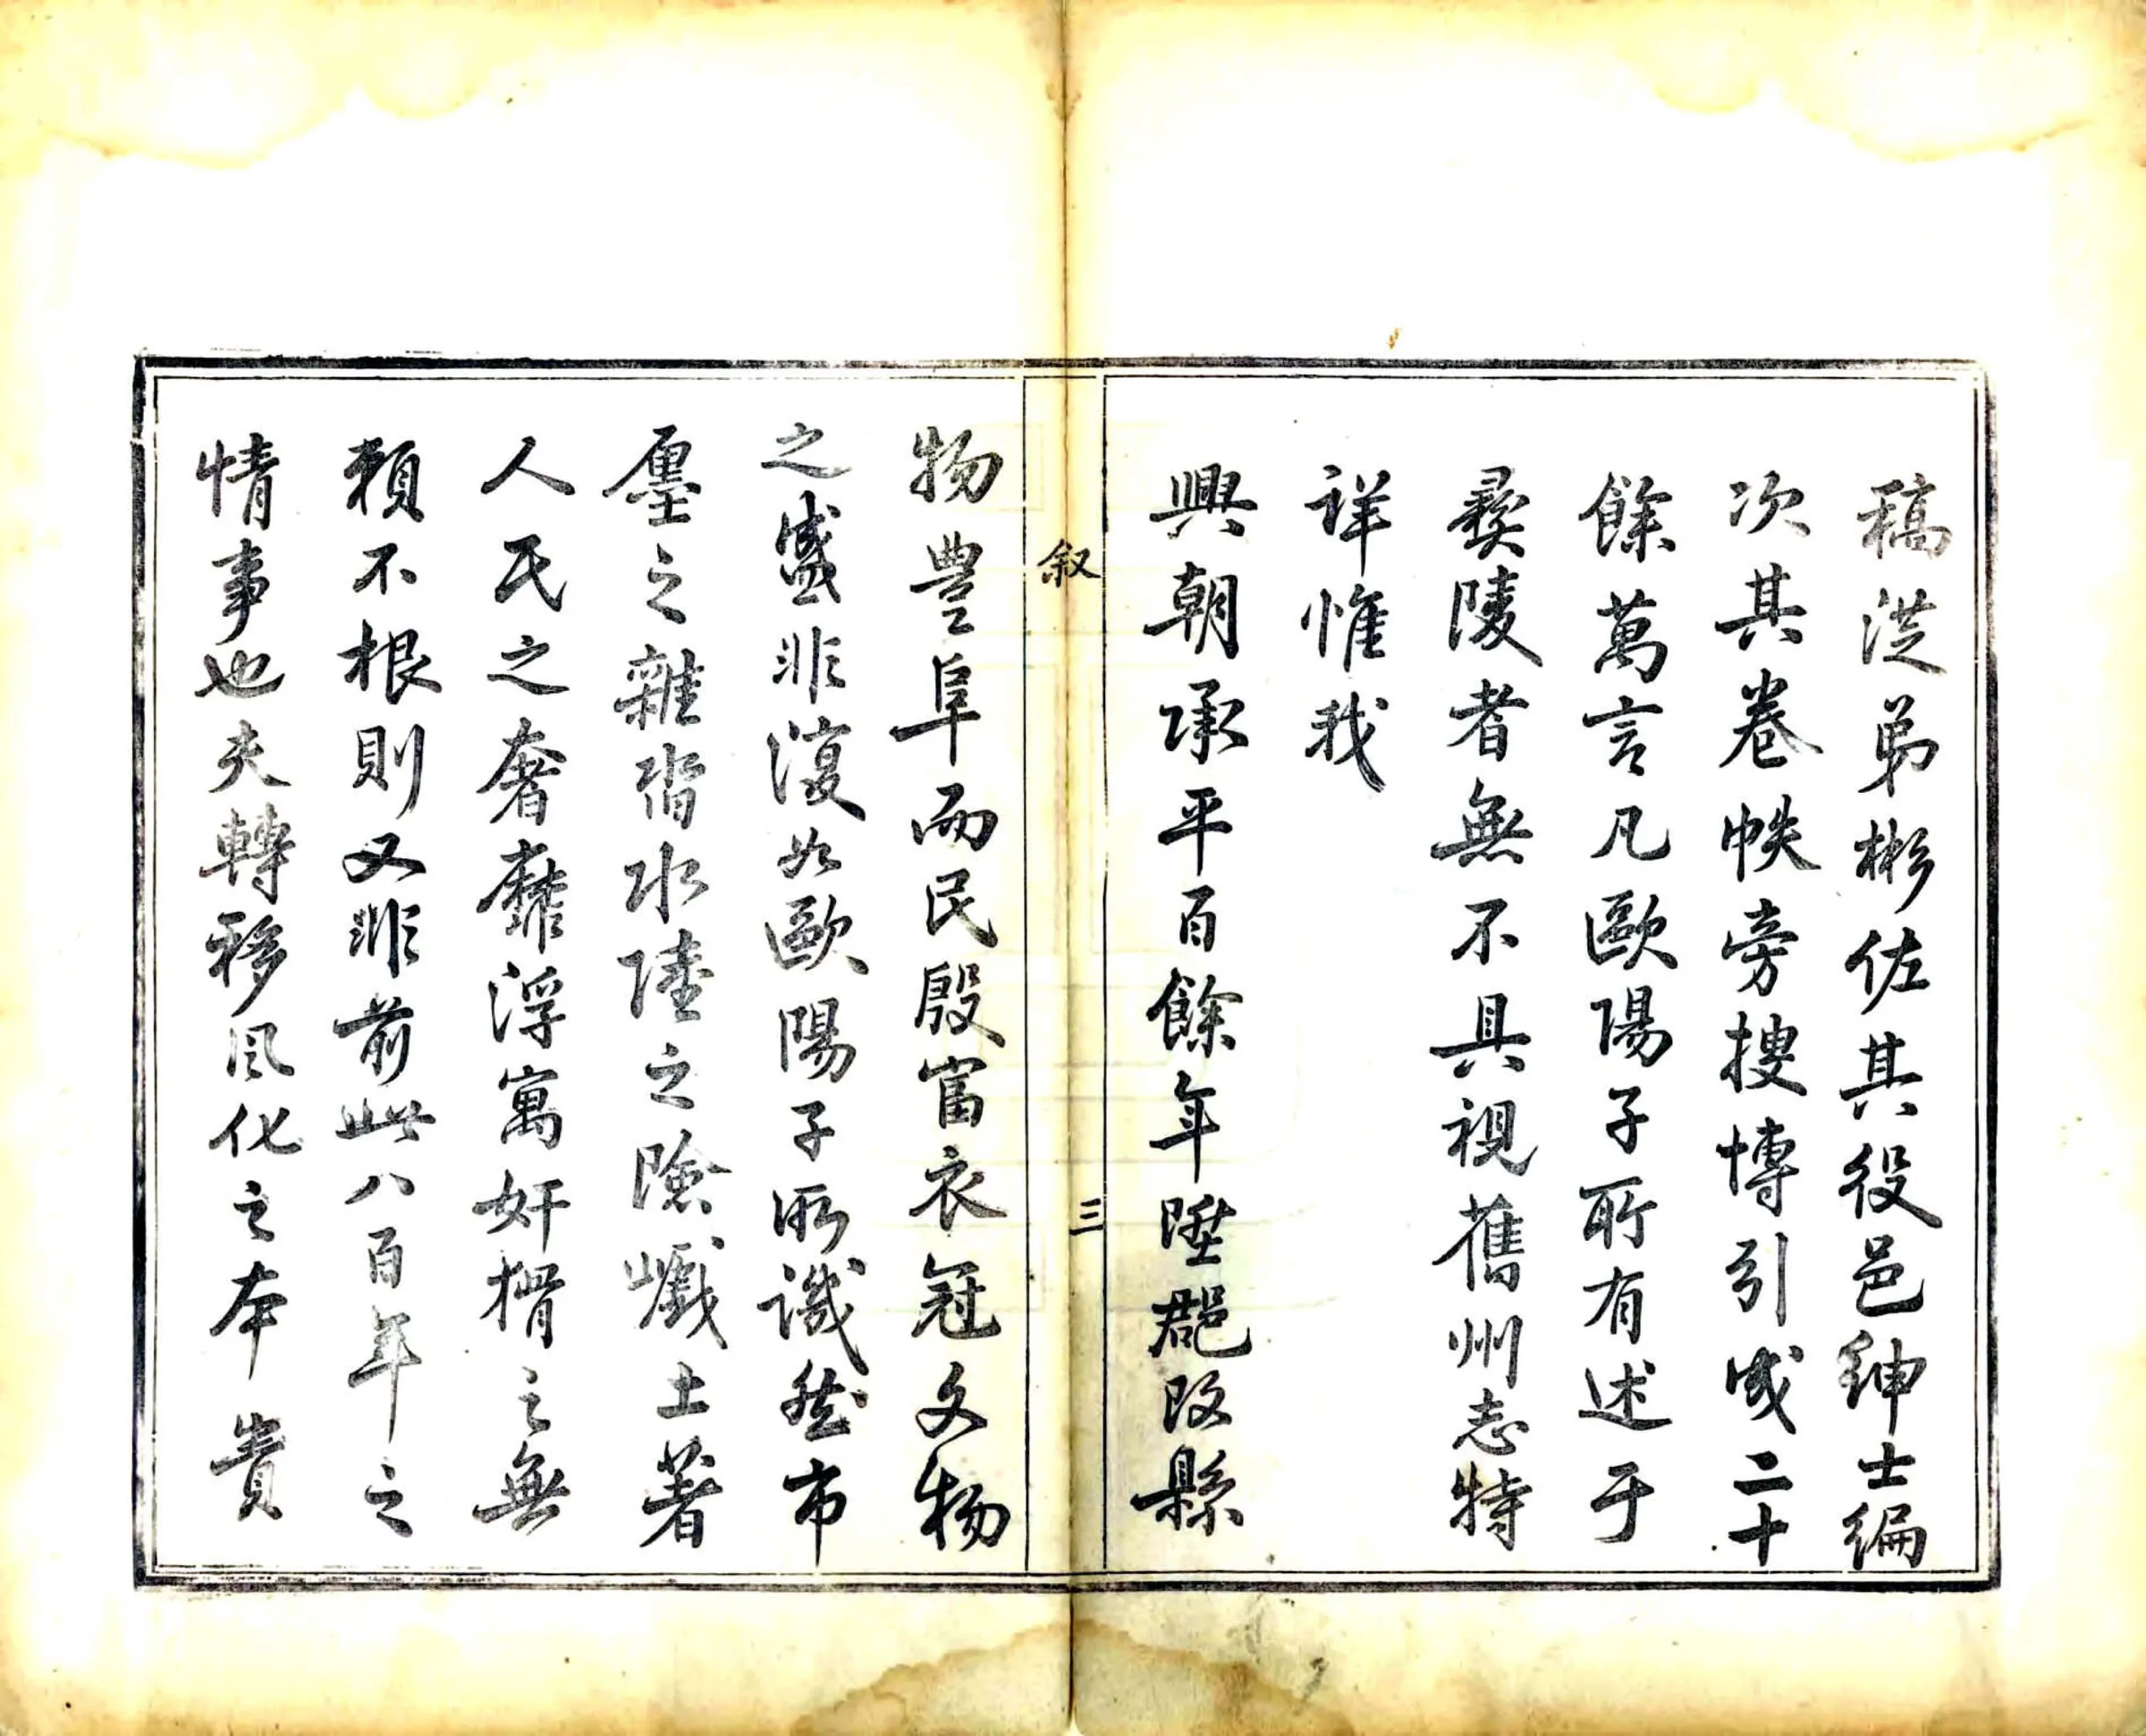 稿洪弟彬佐其役邑紳士編
次其卷帙旁搜博引成二十
餘萬言凡歐陽子所有述于
彝陵者無不具視舊州志特
詳惟我
興朝承平百餘年陞郡改縣
叙
三
物豐阜而民殷富衣冠文物
之盛非復如歐陽子所譏然市
廛之雜沓水陸之險巇土著
人民之奢靡浮寓奸猾之無
賴不根則又非前此八百年之
情事也夫轉移風化之本責